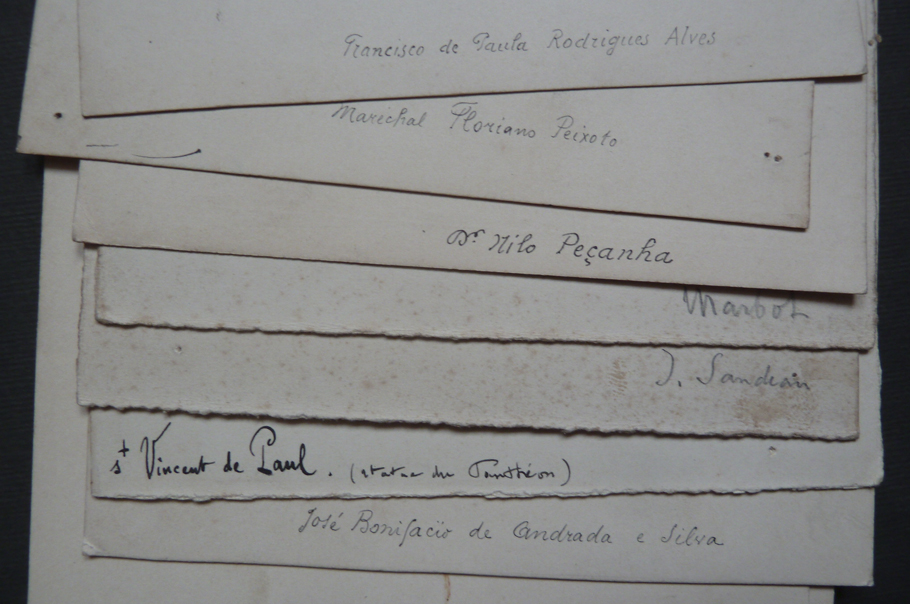 Francisco de Paula Rodrigues Alves
Maréchal Floriano Peixoto
Dr Nilo Peçanha
Marbot
J. Sandeau
St Vincent de Paul. (statue du Panthéon)
José Bonifacio de Andrada e Silva